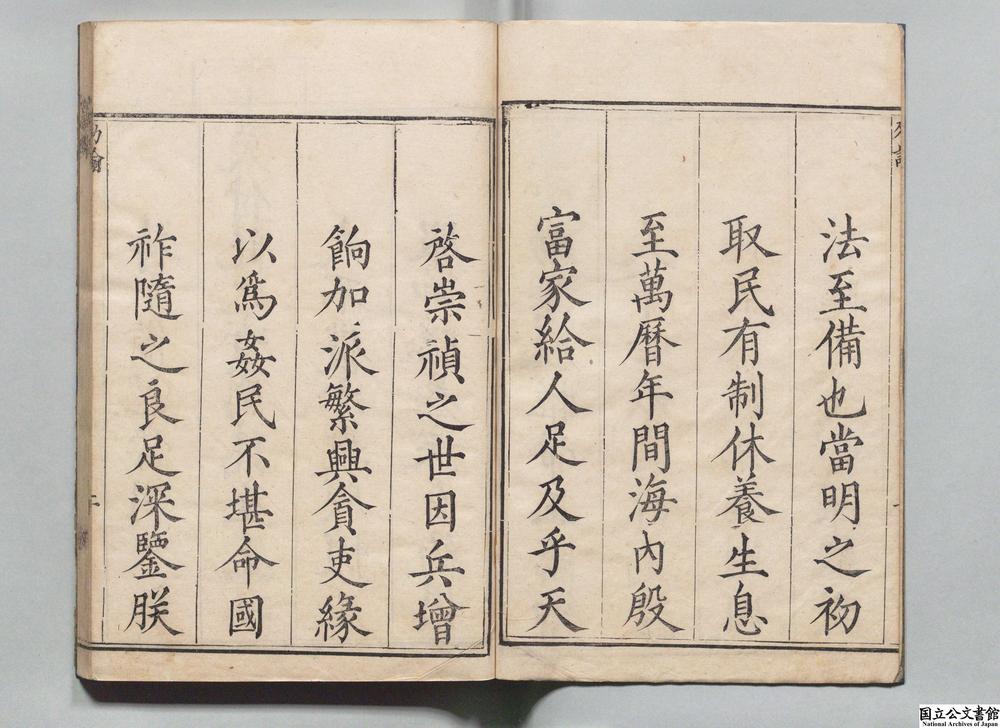 法至備也當明之初
取民有制休養生息
至萬曆年間海內殷
富家給人足及乎天
啓崇禎之世因兵增
餉加派繁興貪吏緣
以爲姦民不堪命國
祚隨之良足深鑒朕
国立公文書館
National Archives of Japan